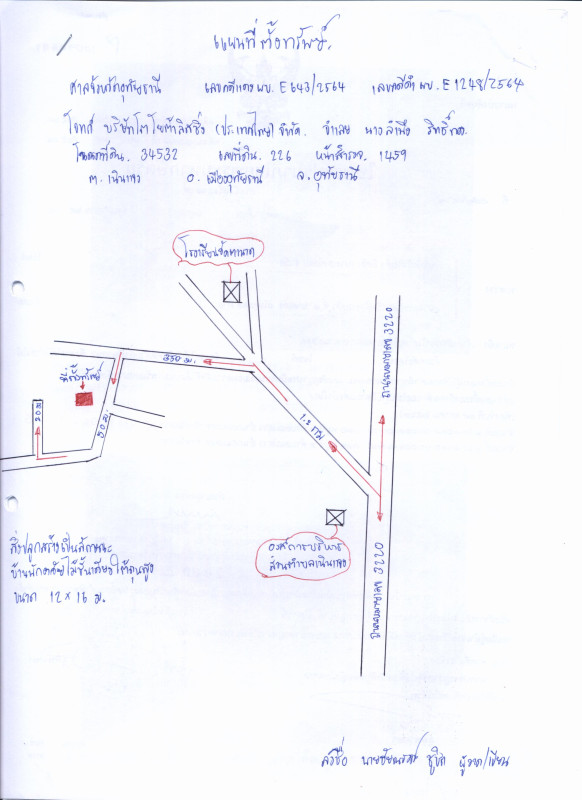 แผนที่ตั้งทรัพย์.
ศาลจังหวัดอุทัยธานี เลขคดีแดง ผบ. E 643/2564 เลขคดีดำ ผบ. E 1248/2564
โจทก์ บริษัทโตโยต้าลิสซิ่ง (ประเทศไทย) จำกัด. จำเลย นาง
โฉนดที่ดิน. 34532 เลขที่ดิน. 226 หน้าสำรวจ. 1459
ต. เนินแจง อ. เมืองอุทัยธานี จ. อุทัยธานี
โรงเรียนวัด
350 ม.
ที่ตั้งทรัพย์
20 ม.
50 ม.
1.2 กม
ถนนหมายเลข 3220
ถนนหมายเลข 3220
องค์การบริหาร
ส่วนตำบลเนินแจง
สิ่งปลูกสร้างเป็นลักษณะ
บ้านพักอาศัยไม้ชั้นเดียว ใต้ถุนสูง
ขนาด 12 × 16 ม.
ลงชื่อ ผู้วาด/เขียน